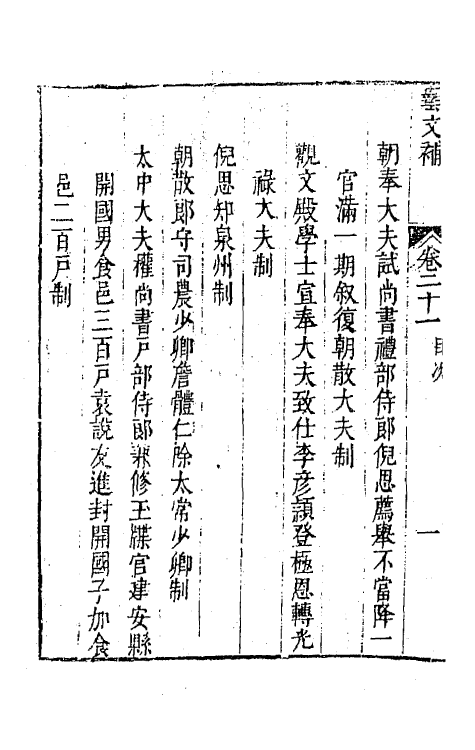 藝文補 卷二十一 目次 一
朝奉大夫試尚書禮部侍郎倪思薦舉不當降一
官滿一期叙復朝散大夫制
觀文殿學士宣奉大夫致仕李彦頴登極恩轉光
祿大夫制
倪思知泉州制
朝散郎守司農少卿詹體仁除太常少卿制
太中大夫權尚書戸部侍郎兼修玉牒官建安縣
開國男食邑三百戸袁說友進封開國子加食
邑二百戸制